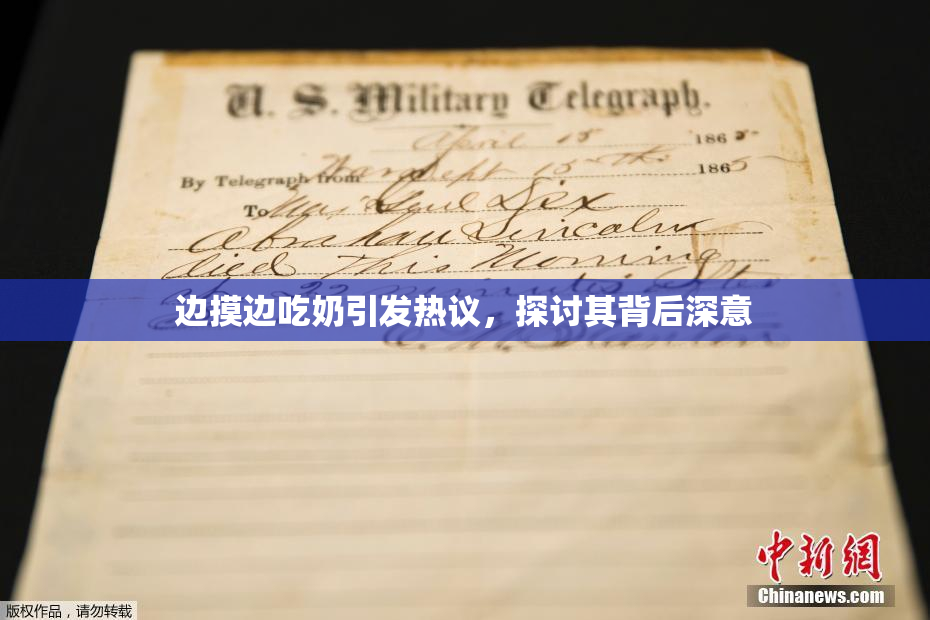 U. S. Military Telegraph.
April 15 1865
By Telegraph from War Dept 15th 1865
To Maj Genl Dix
Abraham Lincoln
died This Morning
at 22 minutes after
边摸边吃奶引发热议，探讨其背后深意
E. M. Stanton
中新網
Chinanews.com
版权作品，请勿转载